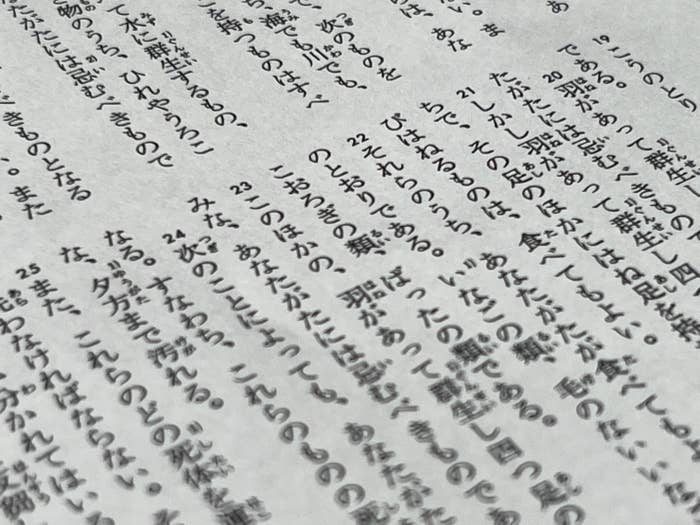 あ
い。ま
は、あな
次のものを
ち、海でも川でも、
こを持つものはすべ
て水に群生するもの、
物のうち、ひれやうろこ
たがたには忌むべきもので
きものとなる
。また
19こうのとり
である。
20羽があって群生
たがたには忌むべきもので
21しかし羽があって群生し四
ちで、その足のほかにはね足を持
びはねるものは、食べてもよい。
22それらのうち、あなたがたが食べてもよ
のとおりである。いなごの類、毛のないいな
こおろぎの類、ばったの類である。
23このほかの、羽があって群生し四つ足の
みな、あなたがたには忌むべきものであ
24次のことによっても、あなたがた
なる。すなわち、これらのものの死
な、夕方まで汚れる。
25また、これらのどの死体を運
わなければならない。そ
分かれてはいる